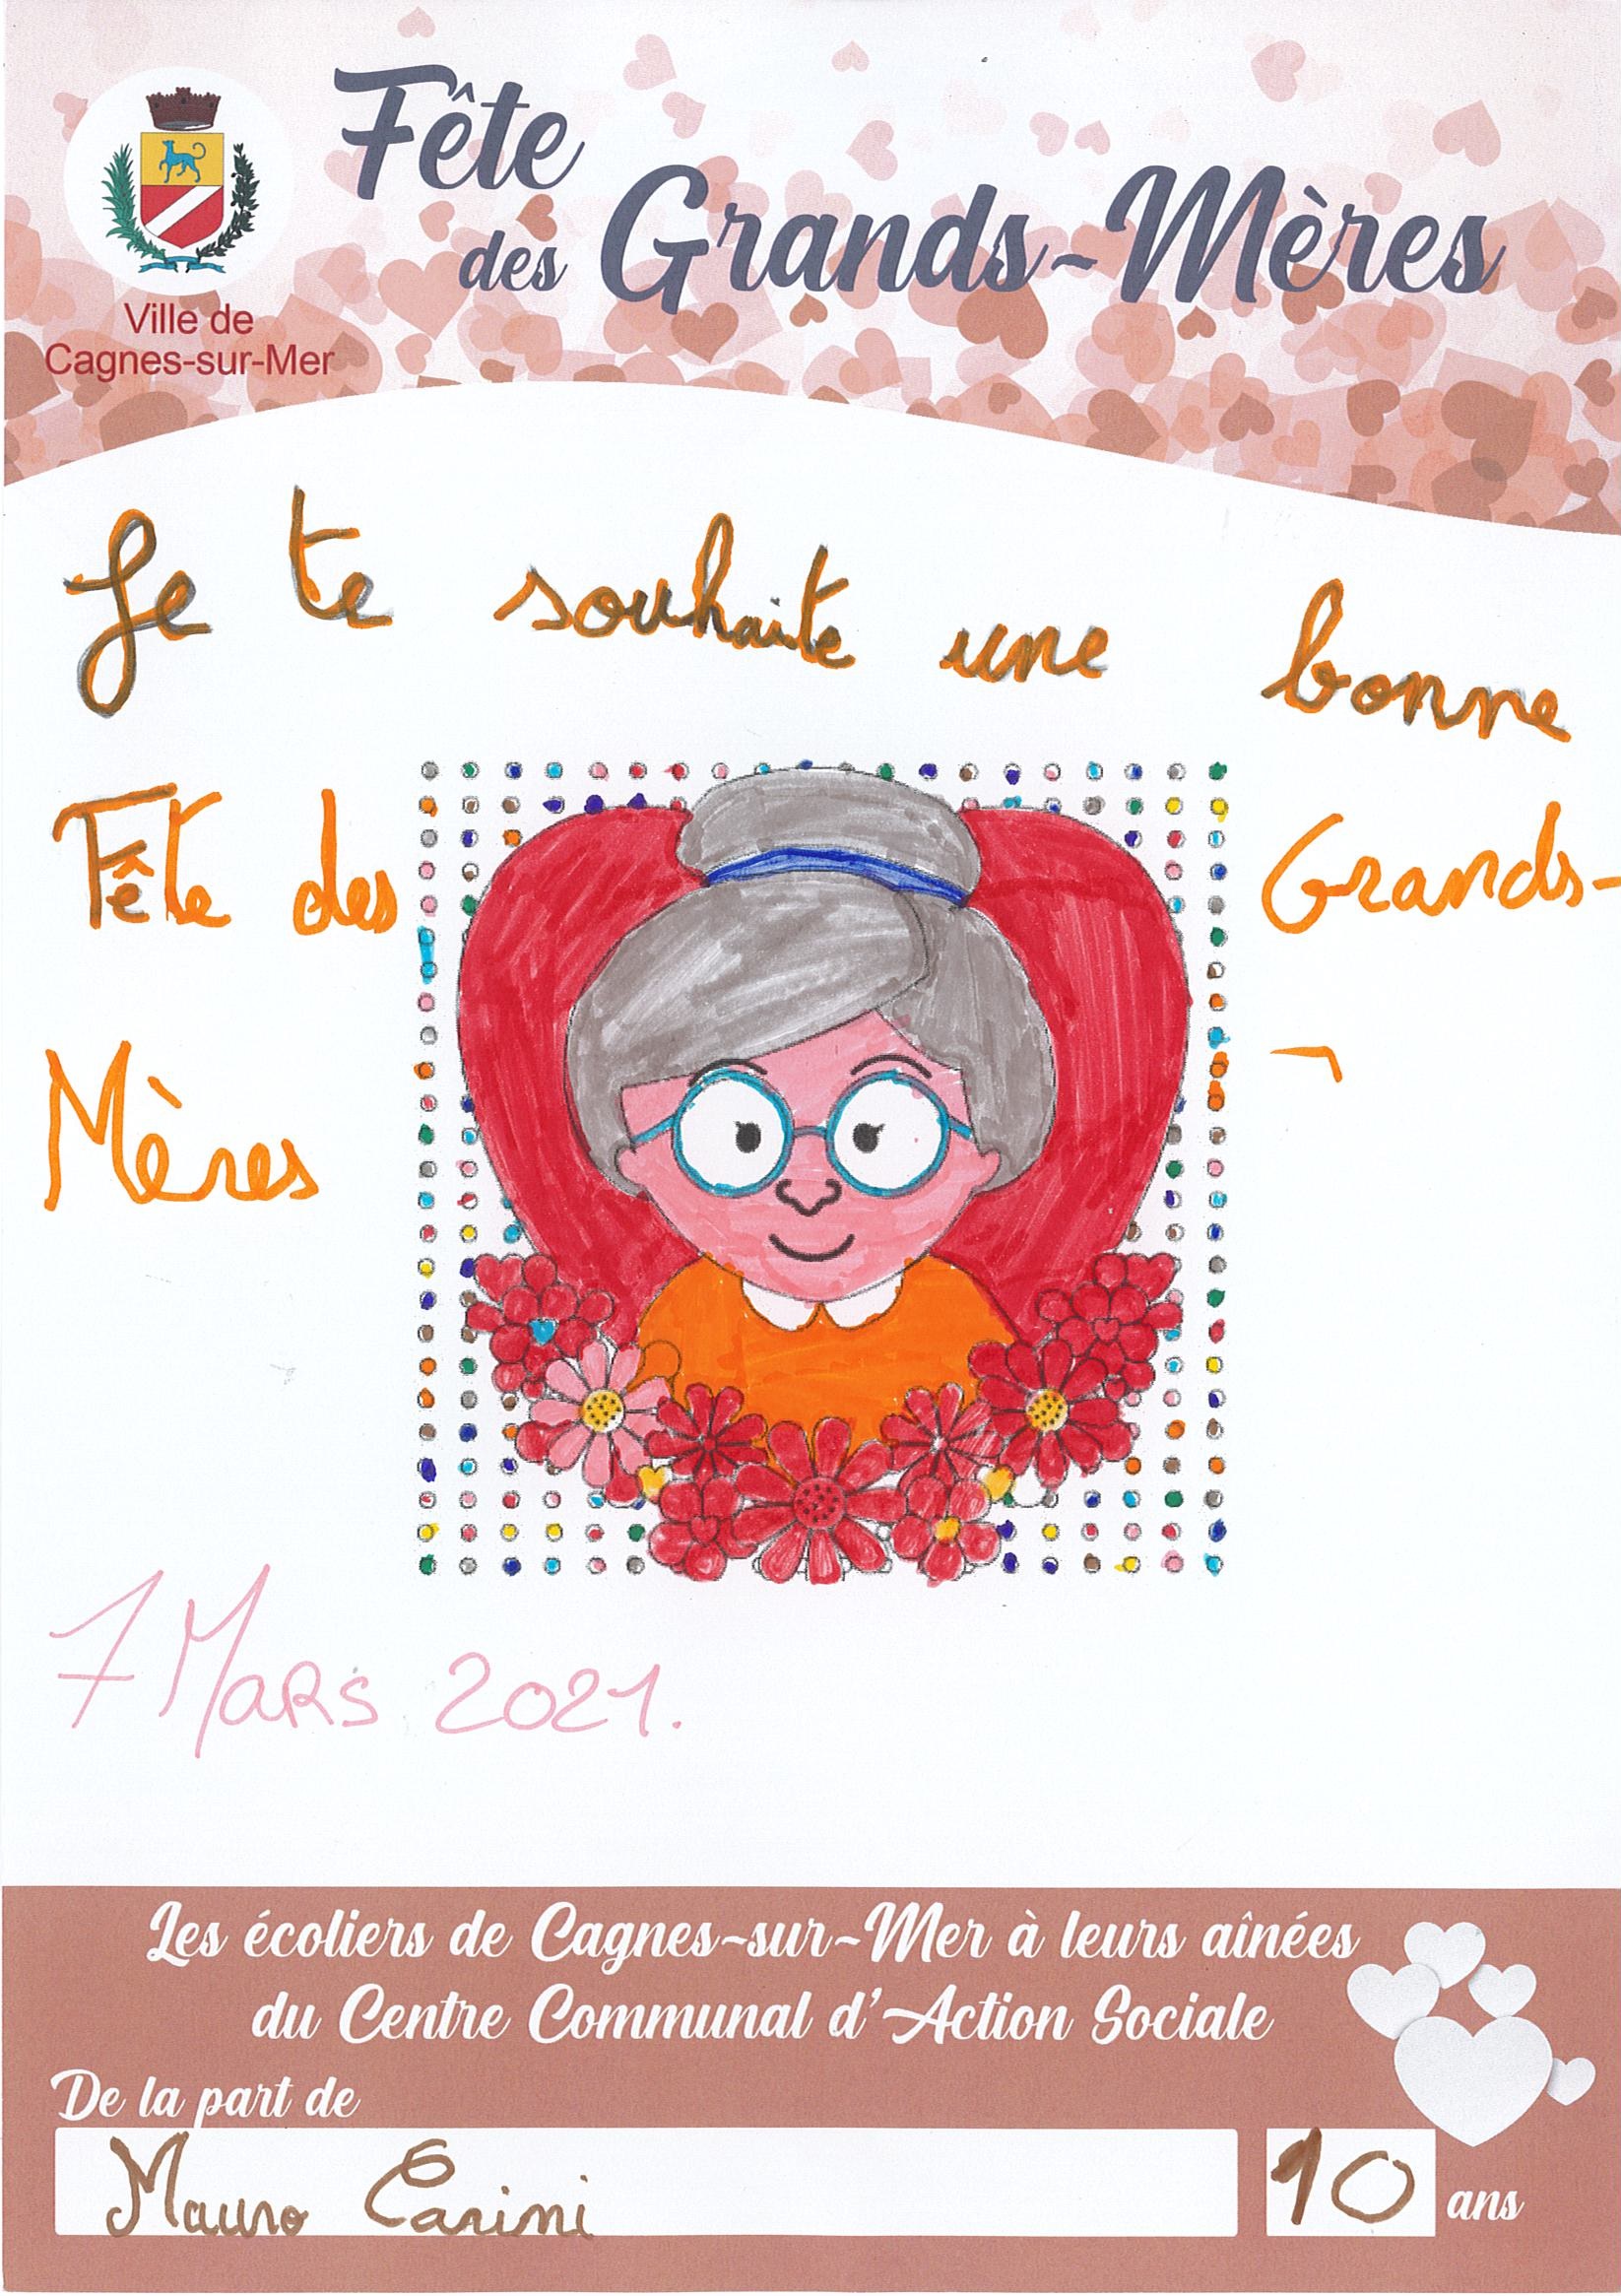 Fête
des Grands-Mères
Ville de
Cagnes-sur-Mer
Je te souhaite une bonne
Fête des Grands-
Mères
7 Mars 2021.
Les écoliers de Cagnes-sur-Mer à leurs aînées
du Centre Communal d'Action Sociale
De la part de
Mauro Carini 10 ans